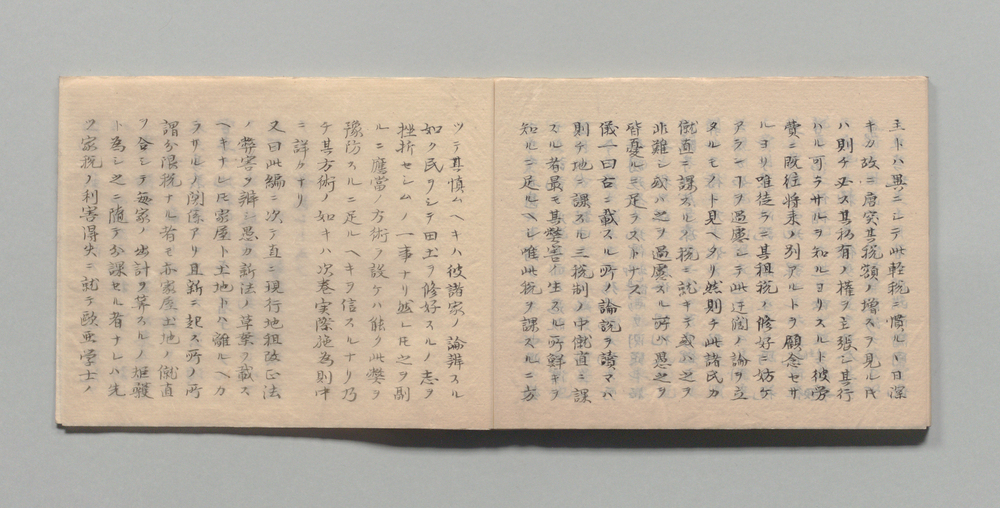 主トハ異ニシテ此輕税ニ慣ルヽ日日深
キカ故ニ唐突其税額ノ増スヲ見ル片
ハ則チ必ス其初有ノ權ヲ主張シ其行
ハル可ラサルヲ知ルヨリスルト彼労
費ニ既往将来ノ別アルトヲ願念セサ
ルヨリ唯徒ラニ其租税ノ修好ニ妨ケ
アランヿヲ過慮シテ此迂闊ノ論ヲ立
タルモノト見ヘタリ然則チ此諸民カ
僦直ニ課スルノ税ニ就キテ或ハ之ヲ
非難シ或ハ之ヲ過慮スル所以愚之ヲ
皆憂ルニ足ラストナス
儀一曰右ニ載スル所ノ論説ヲ讀マハ
則チ地ニ課スル三税制ノ中僦直ニ課
スル者最モ其弊害ノ生スル所鮮キヲ
知ルニ足ルヘシ唯此税ヲ課スルニ方
ツテ其慎ムヘキハ彼諸家ノ論辨スル
如ク民ヲシテ田土ヲ修好スルノ志ヲ
挫折セシムノ一事ナリ然レ𪜈之ヲ制
ルニ應當ノ方術ヲ設ケハ能ク此弊ヲ
豫防スルニ足ルヘキヲ信スルナリ乃
チ其方術ノ如キハ次巻実際施為則中
ニ詳ケナリ
又曰此編ニ次テ直ニ現行地租改正法
ノ弊害ヲ辨シ愚カ新法ノ草葉ヲ載ス
ヘキナレ𪜈家屋ト土地トハ離ルヘカ
ラサルノ関係アリ且新ニ起ス所ノ所
謂分限税ナル者モ亦家屋土地ノ僦直
ヲ合シテ毎家ノ出計ヲ算スルノ矩矱
ト為シ之ニ随テ分課セル者ナレハ先
ツ家税ノ利害得失ニ就テ歐亜学士ノ